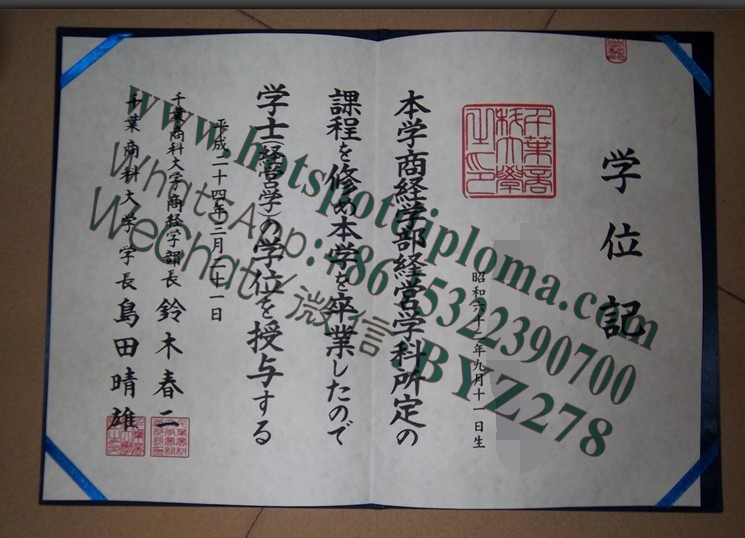 学位記
千葉商
科大學
之印
昭和六十三年九月十一日生
本学商経学部経営学科所定の
課程を修め本学を卒業したので
学士(経営学)の学位を授与する
平成二十四年三月二十一日
千葉商科大学商経学部長 鈴木春二
千葉商科大学 学長 島田晴雄
www.hotspotdiploma.com
WhatsApp:+8615322390700
WeChat/微信:BYZ278